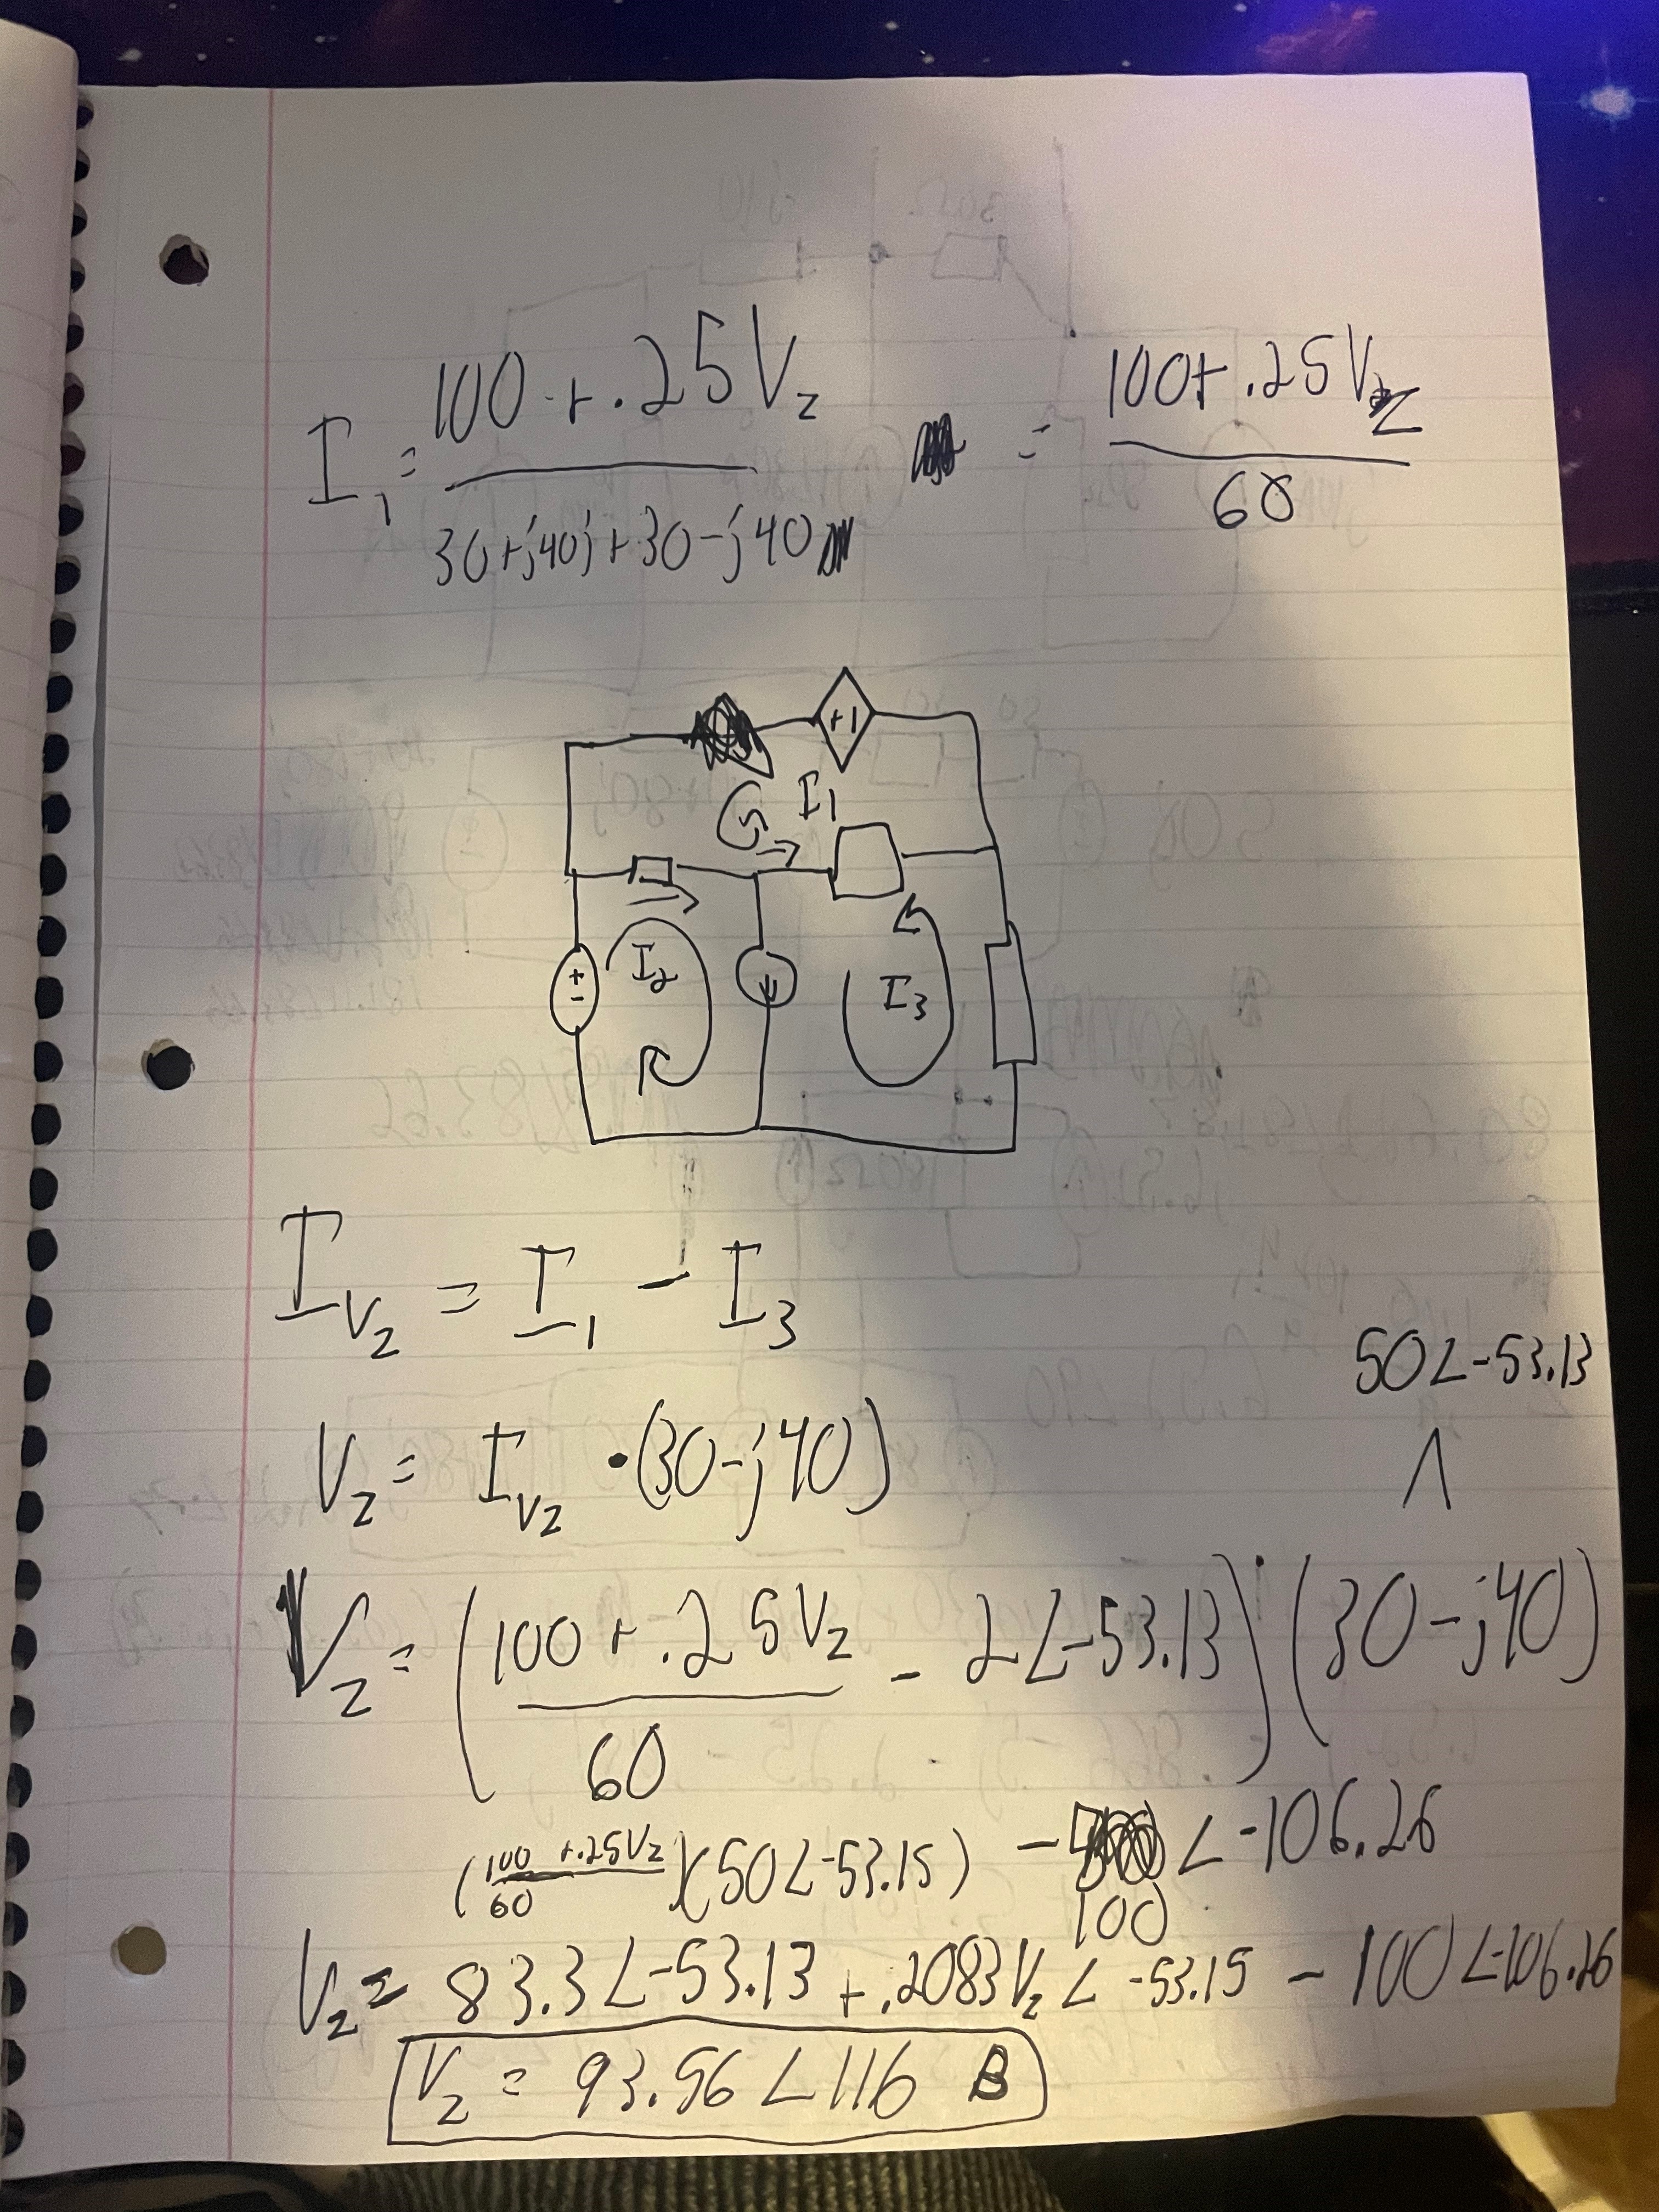 I₁ = (100 + .25V₂)/(30+j40j+30-j40) = (100+.25V₂)/60
+1
I₁
+
-
I₂
I₃
I_V₂ = I₁ - I₃
50∠-53.13
V₂ = I_V₂ •(30-j40)
V₂ = ((100 + .25V₂)/60 - 2∠-53.13)(30-j40)
(100/60 +.25V₂)(50∠-53.15) - 100∠-106.26
V₂ = 83.3∠-53.13 + .2083V₂∠-53.15 - 100∠-106.26
V₂ = 93.56∠116 B